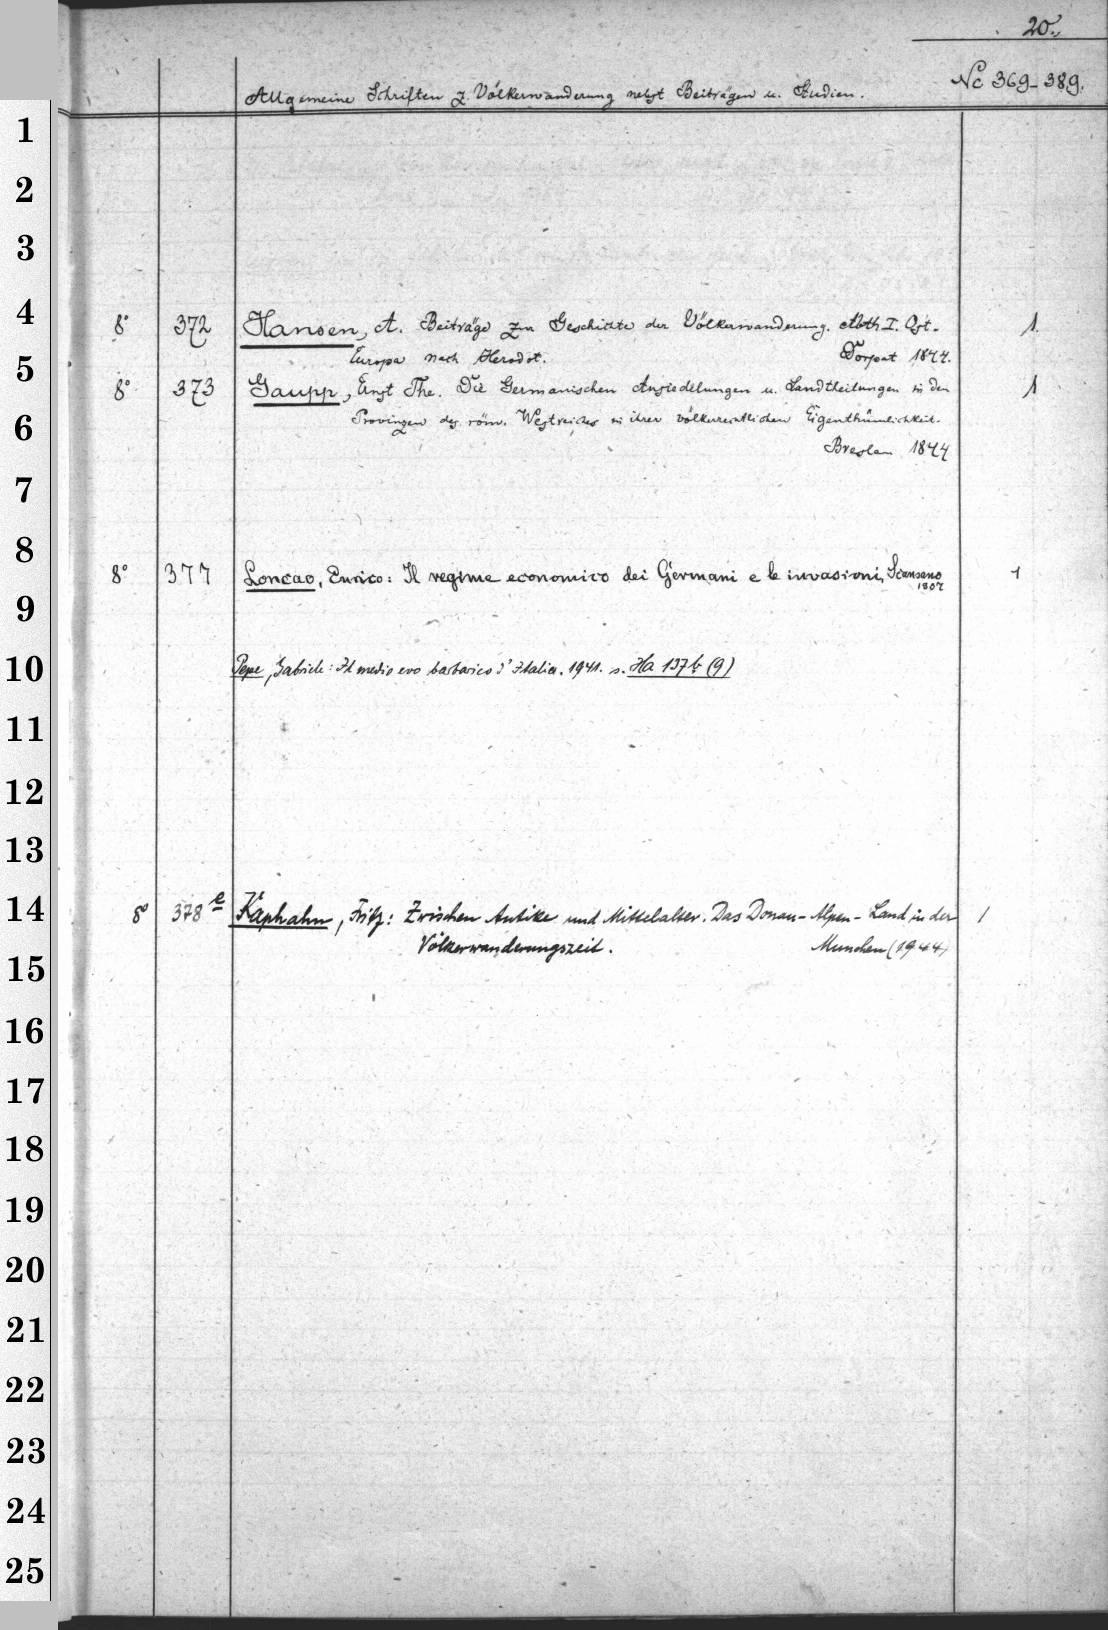 20.
Nc 369-389.
Allgemeine Schriften z. Völkerwanderung nebst Beiträgen u. Studien.
1
2
3
4
8° 372 Hansen, A. Beiträge zur Geschichte der Völkerwanderung. Abth I. Ost- 1
Europa nach Herodot. Dorpat 1844.
5
8° 373 Gaupp, Ernst The. Die Germanischen Ansiedelungen u. Landtheilungen in den 1
Provinzen des röm. Westreiches in ihrer völkerrechtlichen Eigenthümlichkeit.
6
Breslau 1844
7
8
8° 377 Loncao, Enrico: Il regime economico dei Germani e le invasioni, Scansano 1
1907
9
10
Pepe, Gabriele: Il medio evo barbarico d'Italia. 1941. s. Ha 137 b (9)
11
12
13
14
8° 378 e Kaphahn, Fritz: Zwischen Antike und Mittelalter. Das Donau-Alpen-Land in der 1
Völkerwanderungszeit. München (1944)
15
16
17
18
19
20
21
22
23
24
25